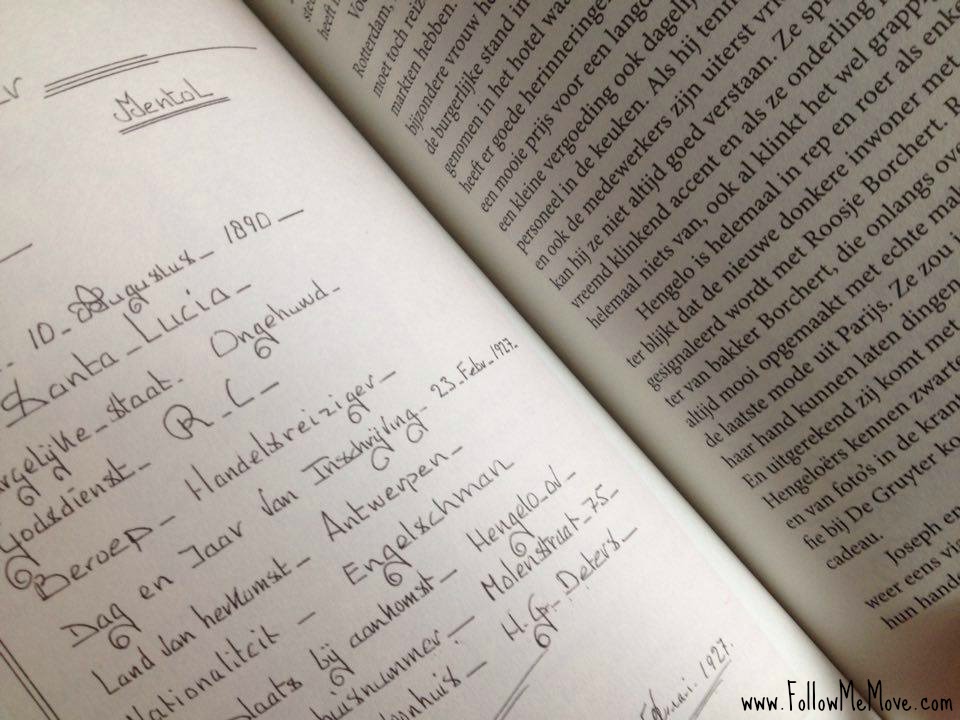 Mentol
10 Augustus 1890
Santa Lucia
staat. Ongehuwd
Godsdienst R.C
Beroep Handelsreiziger
Dag en Jaar van Inschrijving 23 Febr 1927.
Land van herkomst Antwerpen
Nationaliteit Engelschman
bij aankomst Hengelo ov
huisnummer Molenstraat 75
H. Gr. Deters
1927.
heeft
Rotterdam,
moet toch reiz
markten hebben.
bijzondere vrouw he
de burgerlijke stand in
genomen in het hotel waa
heeft er goede herinneringe
een mooie prijs voor een lango
een kleine vergoeding ook dagelij
personeel in de keuken. Als hij tenn
en ook de medewerkers zijn uiterst vri
kan hij ze niet altijd goed verstaan. Ze spr
vreemd klinkend accent en als ze onderling
helemaal niets van, ook al klinkt het wel grappi
Hengelo is helemaal in rep en roer als enke
ter blijkt dat de nieuwe donkere inwoner met
gesignaleerd wordt met Roosje Borchert. R
ter van bakker Borchert, die onlangs ove
altijd mooi opgemaakt met echte mak
de laatste mode uit Parijs. Ze zou i
haar hand kunnen laten dingen
En uitgerekend zij komt met
Hengeloërs kennen zwarte
en van foto's in de krant
fie bij De Gruyter ko
cadeau.
Joseph en
weer eens via
hun hande
www.FollowMeMove.com